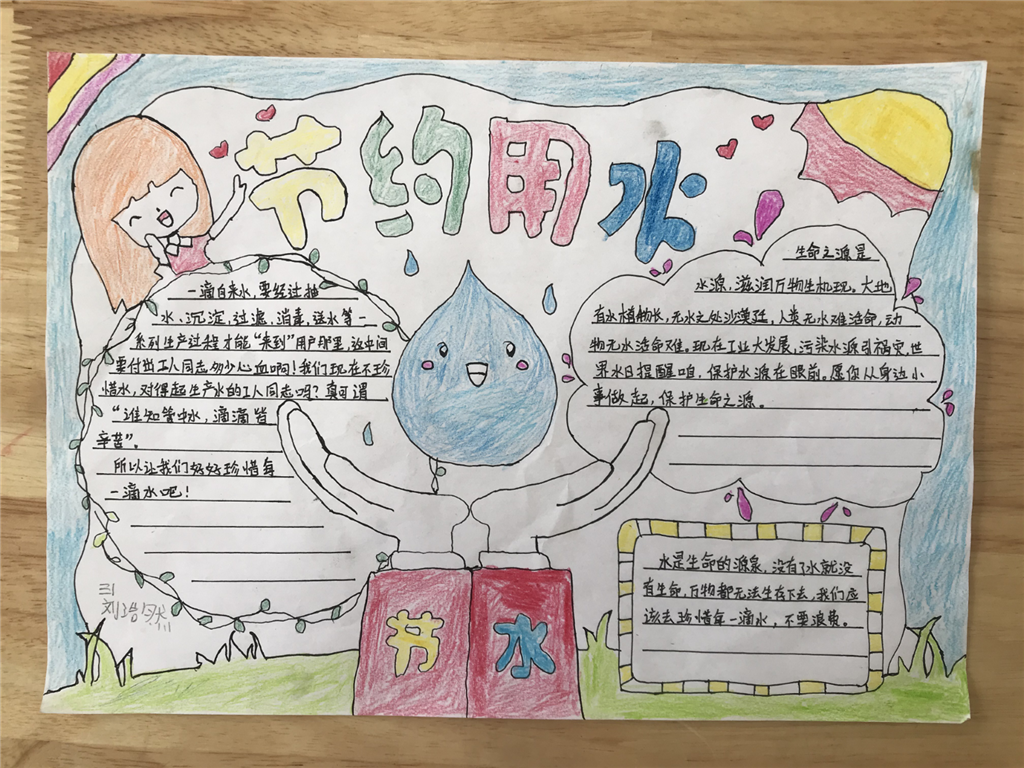 节约用水
一滴自来水，要经过抽
水、沉淀、过滤、消毒、送水等一
系列生产过程才能“来到”用户那里，这中间
要付出工人同志多少心血啊！我们现在不珍
惜水，对得起生产水的工人同志吗？真可谓
“谁知管中水，滴滴皆
辛苦”。
所以让我们好好珍惜每
一滴水吧！
三1
刘浩然
生命之源是
水源，滋润万物生机现。大地
有水植物长，无水之处沙漠延，人类无水难活命，动
物无水活命难。现在工业大发展，污染水源引祸灾，世
界水日提醒咱，保护水源在眼前。愿你从身边小
事做起，保护生命之源。
节水
水是生命的源泉，没有了水就没
有生命，万物都无法生存下去，我们应
该去珍惜每一滴水，不要浪费。